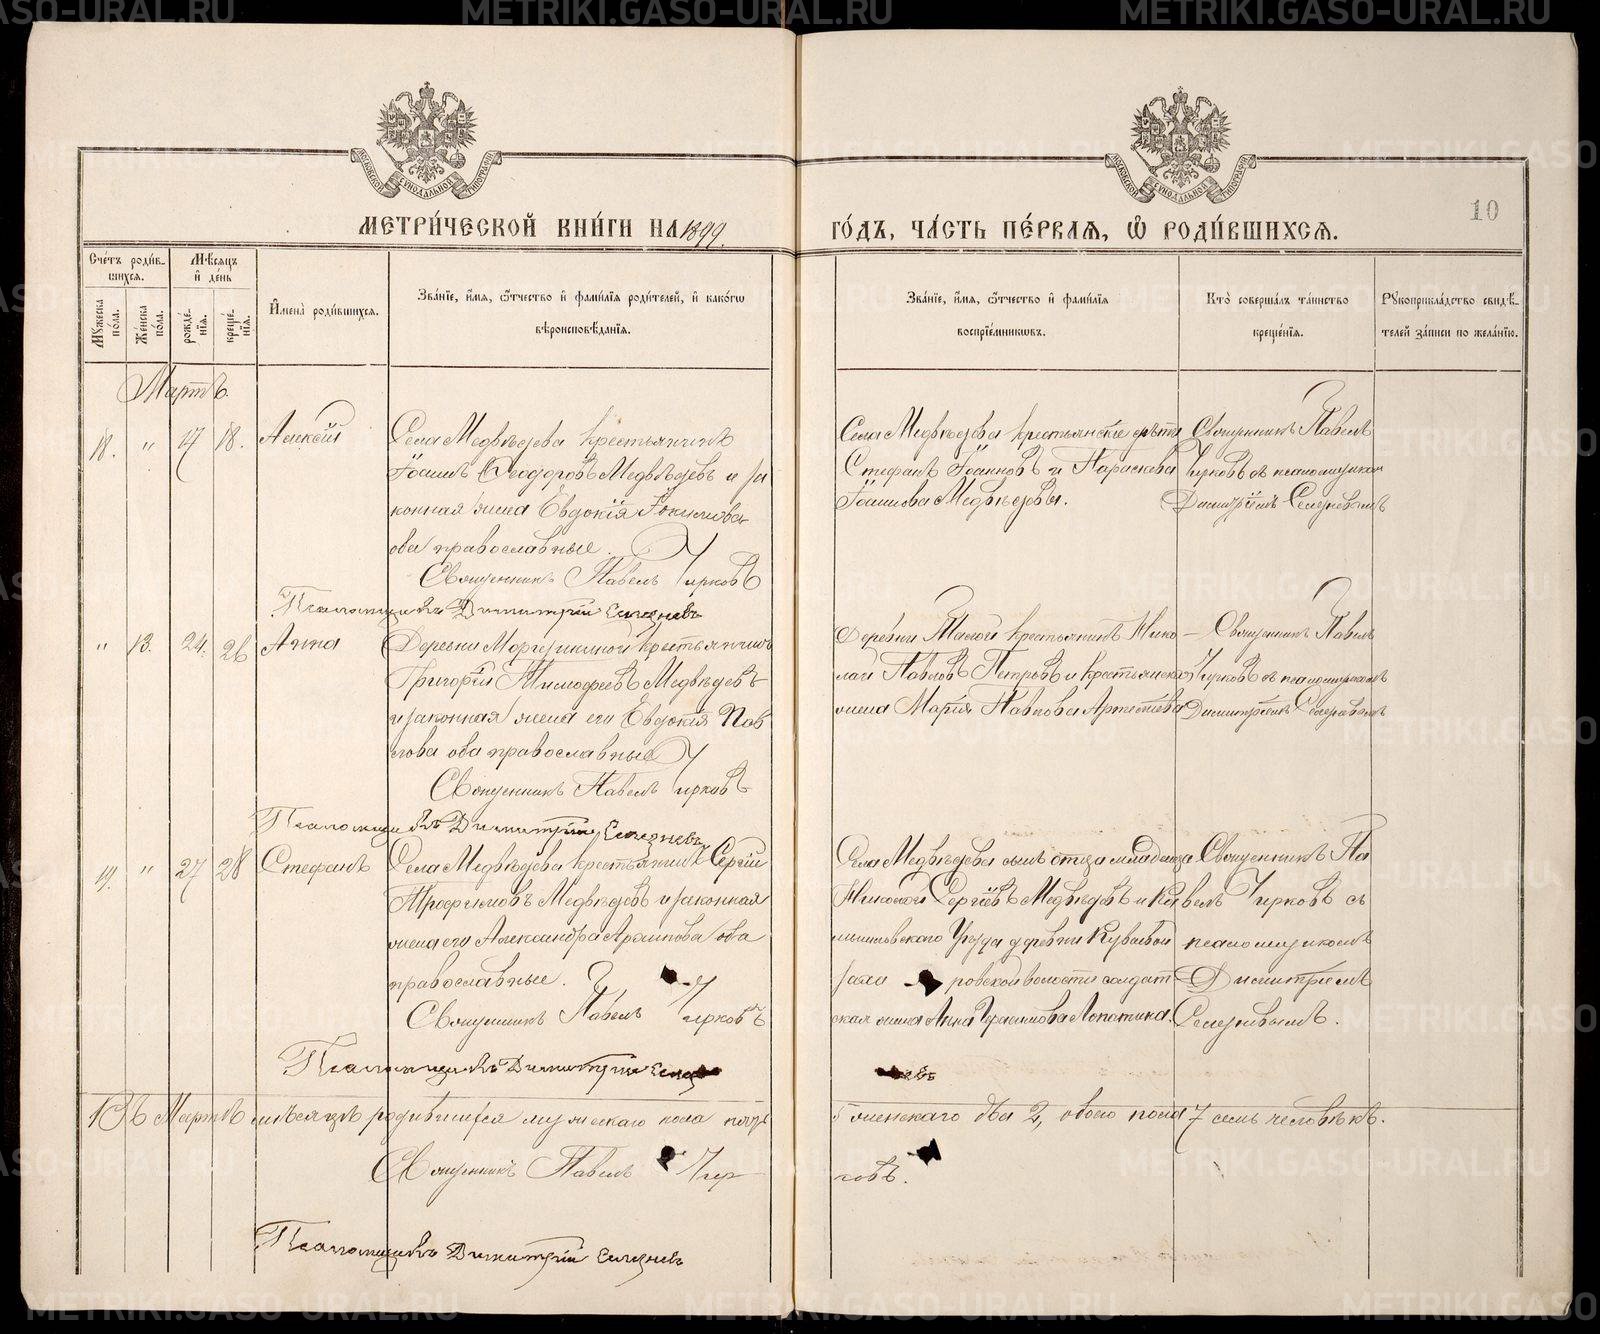 METRIKI.GASO-URAL.RU
METRIKI.GASO-URAL.RU
МОСКОВСКОЙ СУНОДАЛЬНОЙ ТИПОГРАФІИ
МОСКОВСКОЙ СУНОДАЛЬНОЙ ТИПОГРАФІИ
10
МЕТРИ́ЧЕСКОЙ КНИ́ГИ НА 1899.
ГО́ДЪ, ЧА́СТЬ ПЕ́РВАѦ, Ѡ҆ РОДИ́ВШИХСѦ.
Сче́тъ роди́в-
шихсѧ.
Мѣ́сѧцъ
и҆ де́нь
Мꙋ́жеска
по́ла.
Же́нска
по́ла.
рожде́-
нїѧ.
креще́-
нїѧ.
И҆мена̀ роди́вшихсѧ.
Зва́нїе, и҆́мѧ, ѻ҆́тчество и҆ фами́лїѧ роди́телей, и҆ како́гѡ
вѣроисповѣ́данїѧ.
Зва́нїе, и҆́мѧ, ѻ҆́тчество и҆ фами́лїѧ
воспрїе́мникѡвъ.
Кто̀ соверша́лъ та́инство
креще́нїѧ.
Рꙋкоприкла́дство свидѣ́-
телей за́писи по жела́нїю.
Мартъ.
18. " 17 18. Алексѣй
Села Медвѣдева крестьянинъ
Іоаннъ Ѳеодоровъ Медвѣдевъ и за
конная жена Евдокія
оба православные.
Священникъ Павелъ Чирковъ
Псаломщикъ Димитрій Селезневъ
Села Медвѣдева крестьянскіе дѣти
Стефанъ Іоанновъ и Параскева
Іоаннова Медвѣдевы.
Священникъ Павелъ
Чирковъ съ псаломщикомъ
Димитріемъ Селезневымъ
" 13. 24. 26 Анна
Деревни крестьянинъ
Григорій Тимофеевъ Медвѣдевъ
и законная жена его Евдокія Пав
лова оба православные
Священникъ Павелъ Чирковъ
Псаломщикъ Димитрій Селезневъ
Деревни крестьянинъ Нико
лай Павловъ Петровъ и крестьянская
жена Марія Павлова Артемьева
Священникъ Павелъ
Чирковъ съ псаломщикомъ
Димитріемъ Селезневымъ
19. " 27 28 Стефанъ
Села Медвѣдева крестьянинъ Сергій
Трофимовъ Медвѣдевъ и законная
жена его Александра Архипова оба
православные.
Священникъ Павелъ Чирковъ
Псаломщикъ Димитрій Селез
Села Медвѣдева сынъ отца младенца
Тихонъ Сергіевъ Медвѣдевъ и К
мышловскаго Уѣзда деревни
ровской волости солдат
ская жена Анна Герасимова Лопаткина.
невъ
Священникъ Па
велъ Чирковъ съ
псаломщикомъ
Димитріемъ
Селезневымъ.
Въ Мартѣ мѣсяцѣ родившихся мужескаго пола пять
5 женскаго два 2, обоего пола 7 семь человѣкъ.
Священникъ Павелъ Чир
ковъ.
Псаломщикъ Димитрій Селезневъ